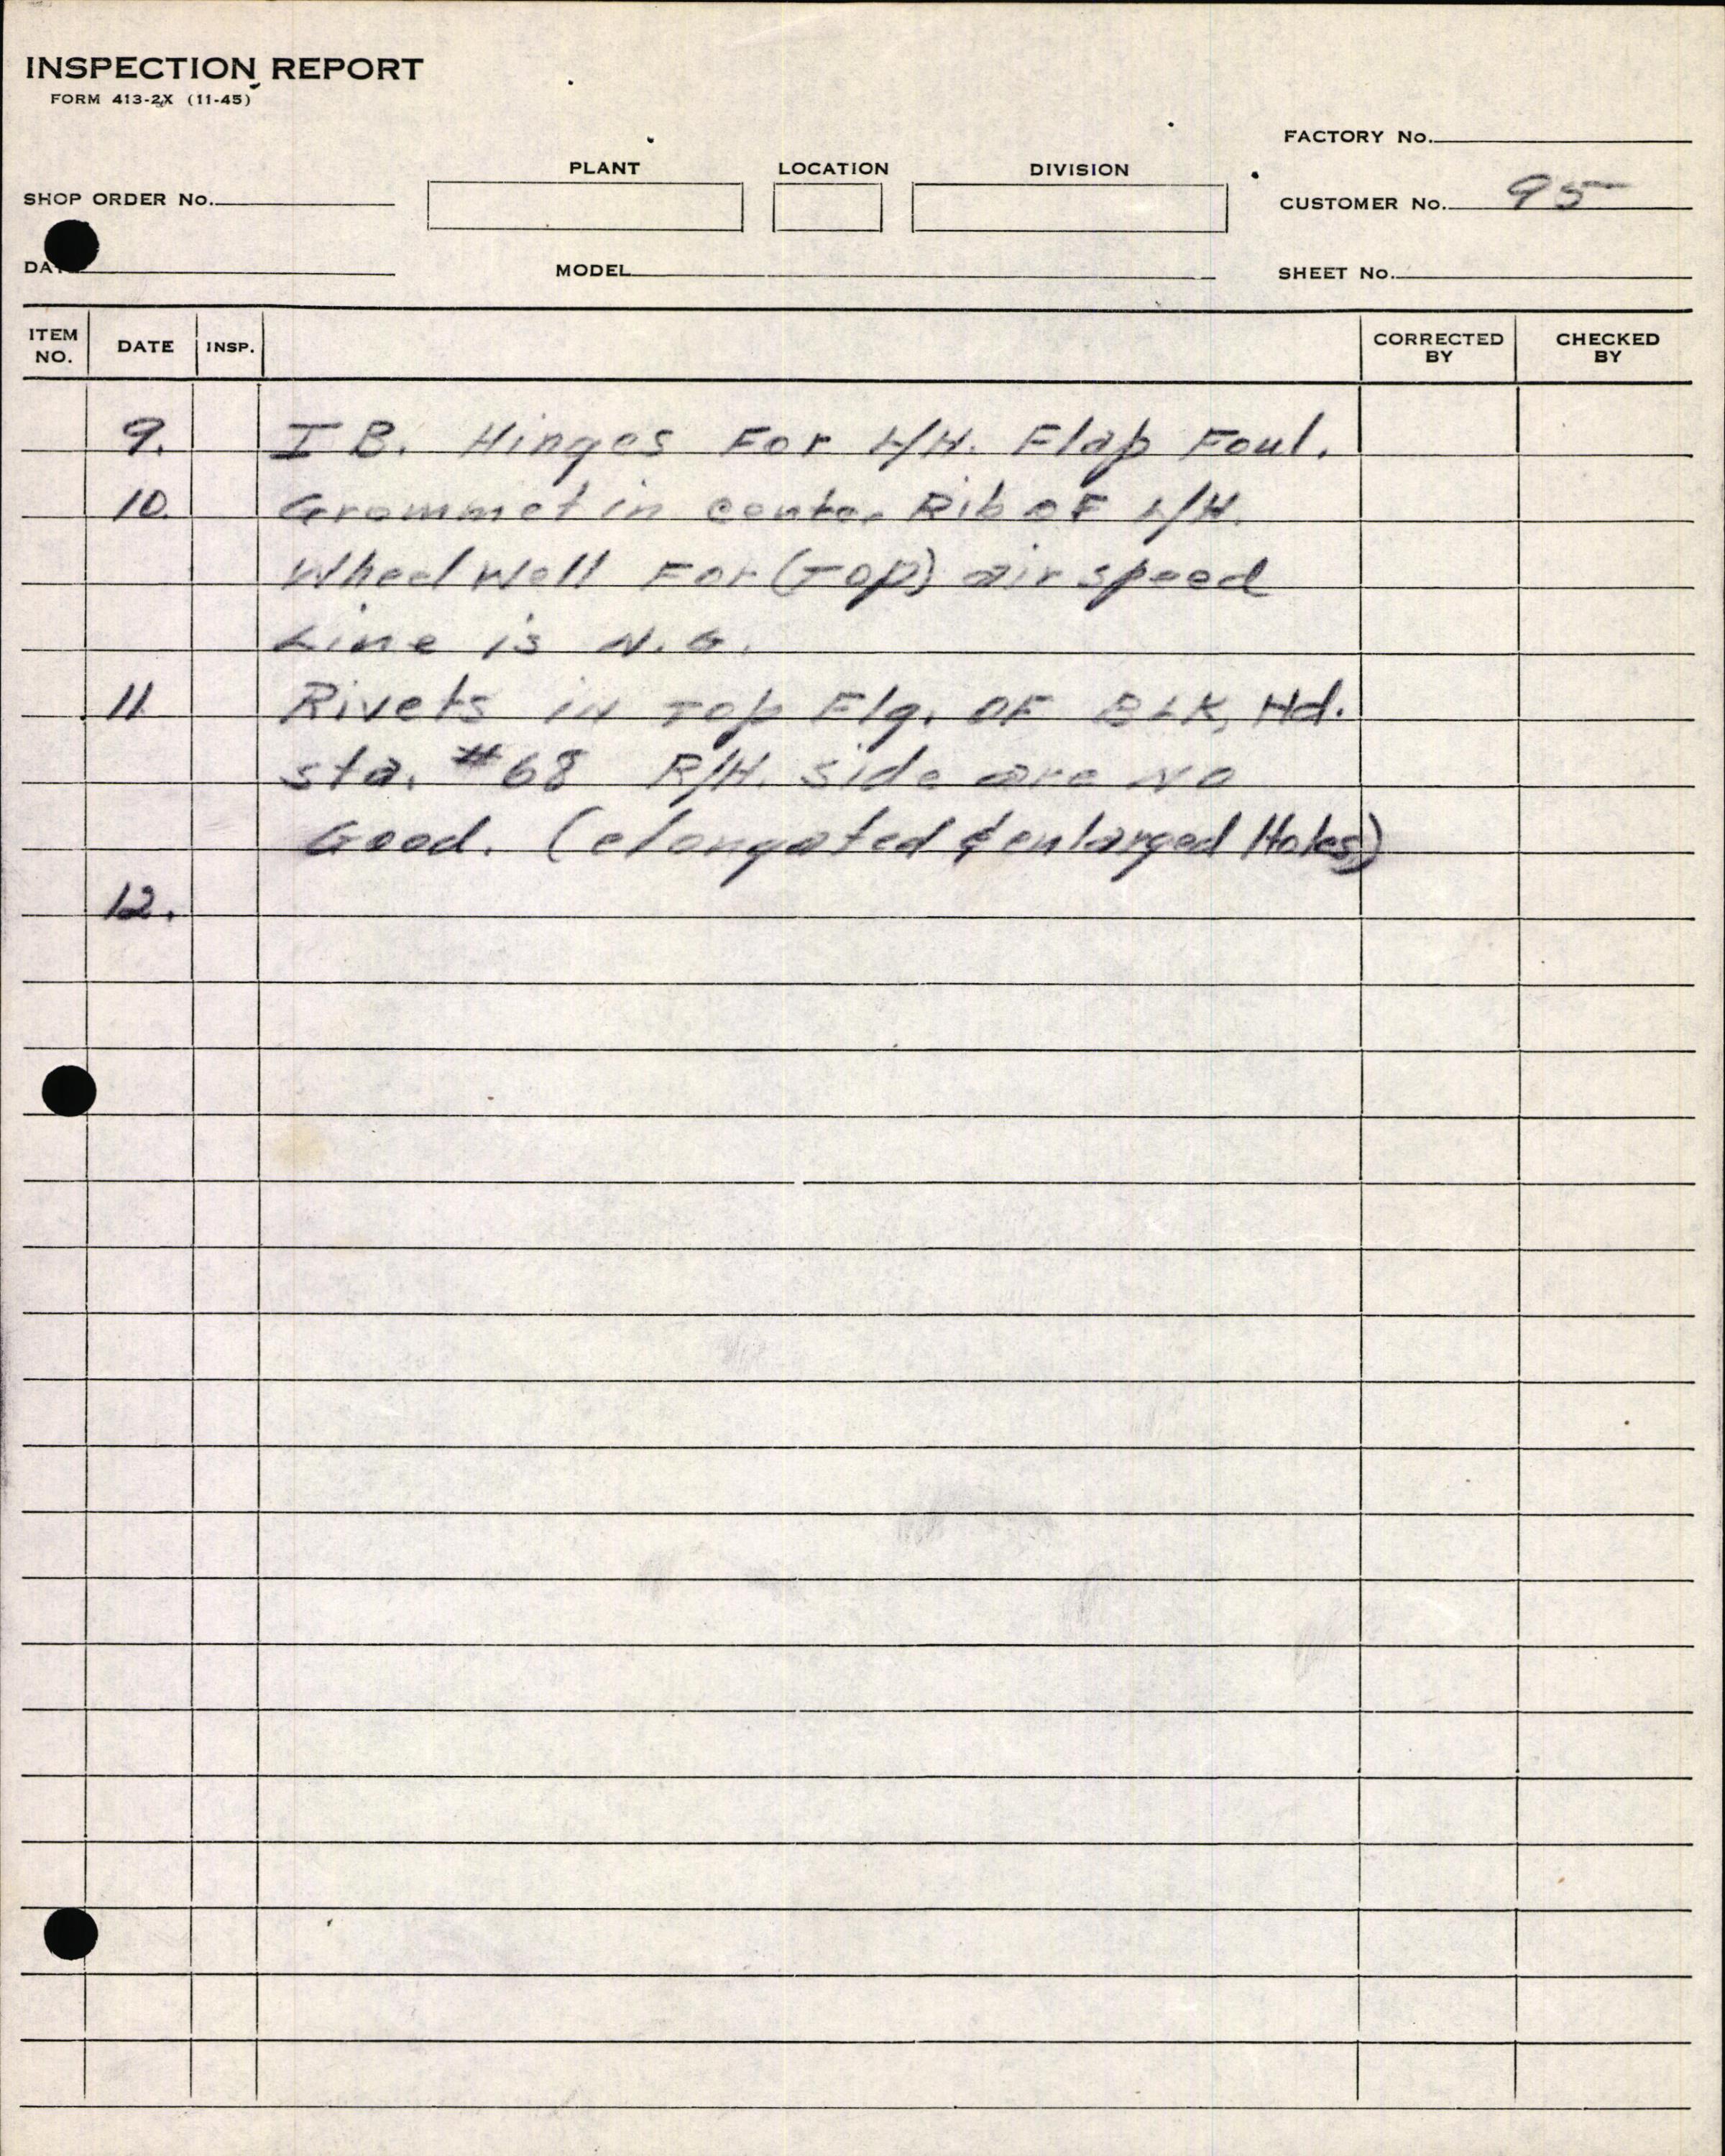 INSPECTION REPORT
FORM 413-2X (11-45)
FACTORY No.
PLANT LOCATION DIVISION
SHOP ORDER No.
CUSTOMER No. 95
DA
MODEL
SHEET No.
ITEM NO. DATE INSP. CORRECTED BY CHECKED BY
9. I B. Hinges For L/H. Flap Foul.
10. Grommet in center Rib OF L/H.
Wheel Well For (Top) air speed
Line is N.G.
11. Rivets in Top Flg. OF BLK, Hd.
sta. #68 R/H. side are No
Good. (elongated & enlarged Holes)
12.